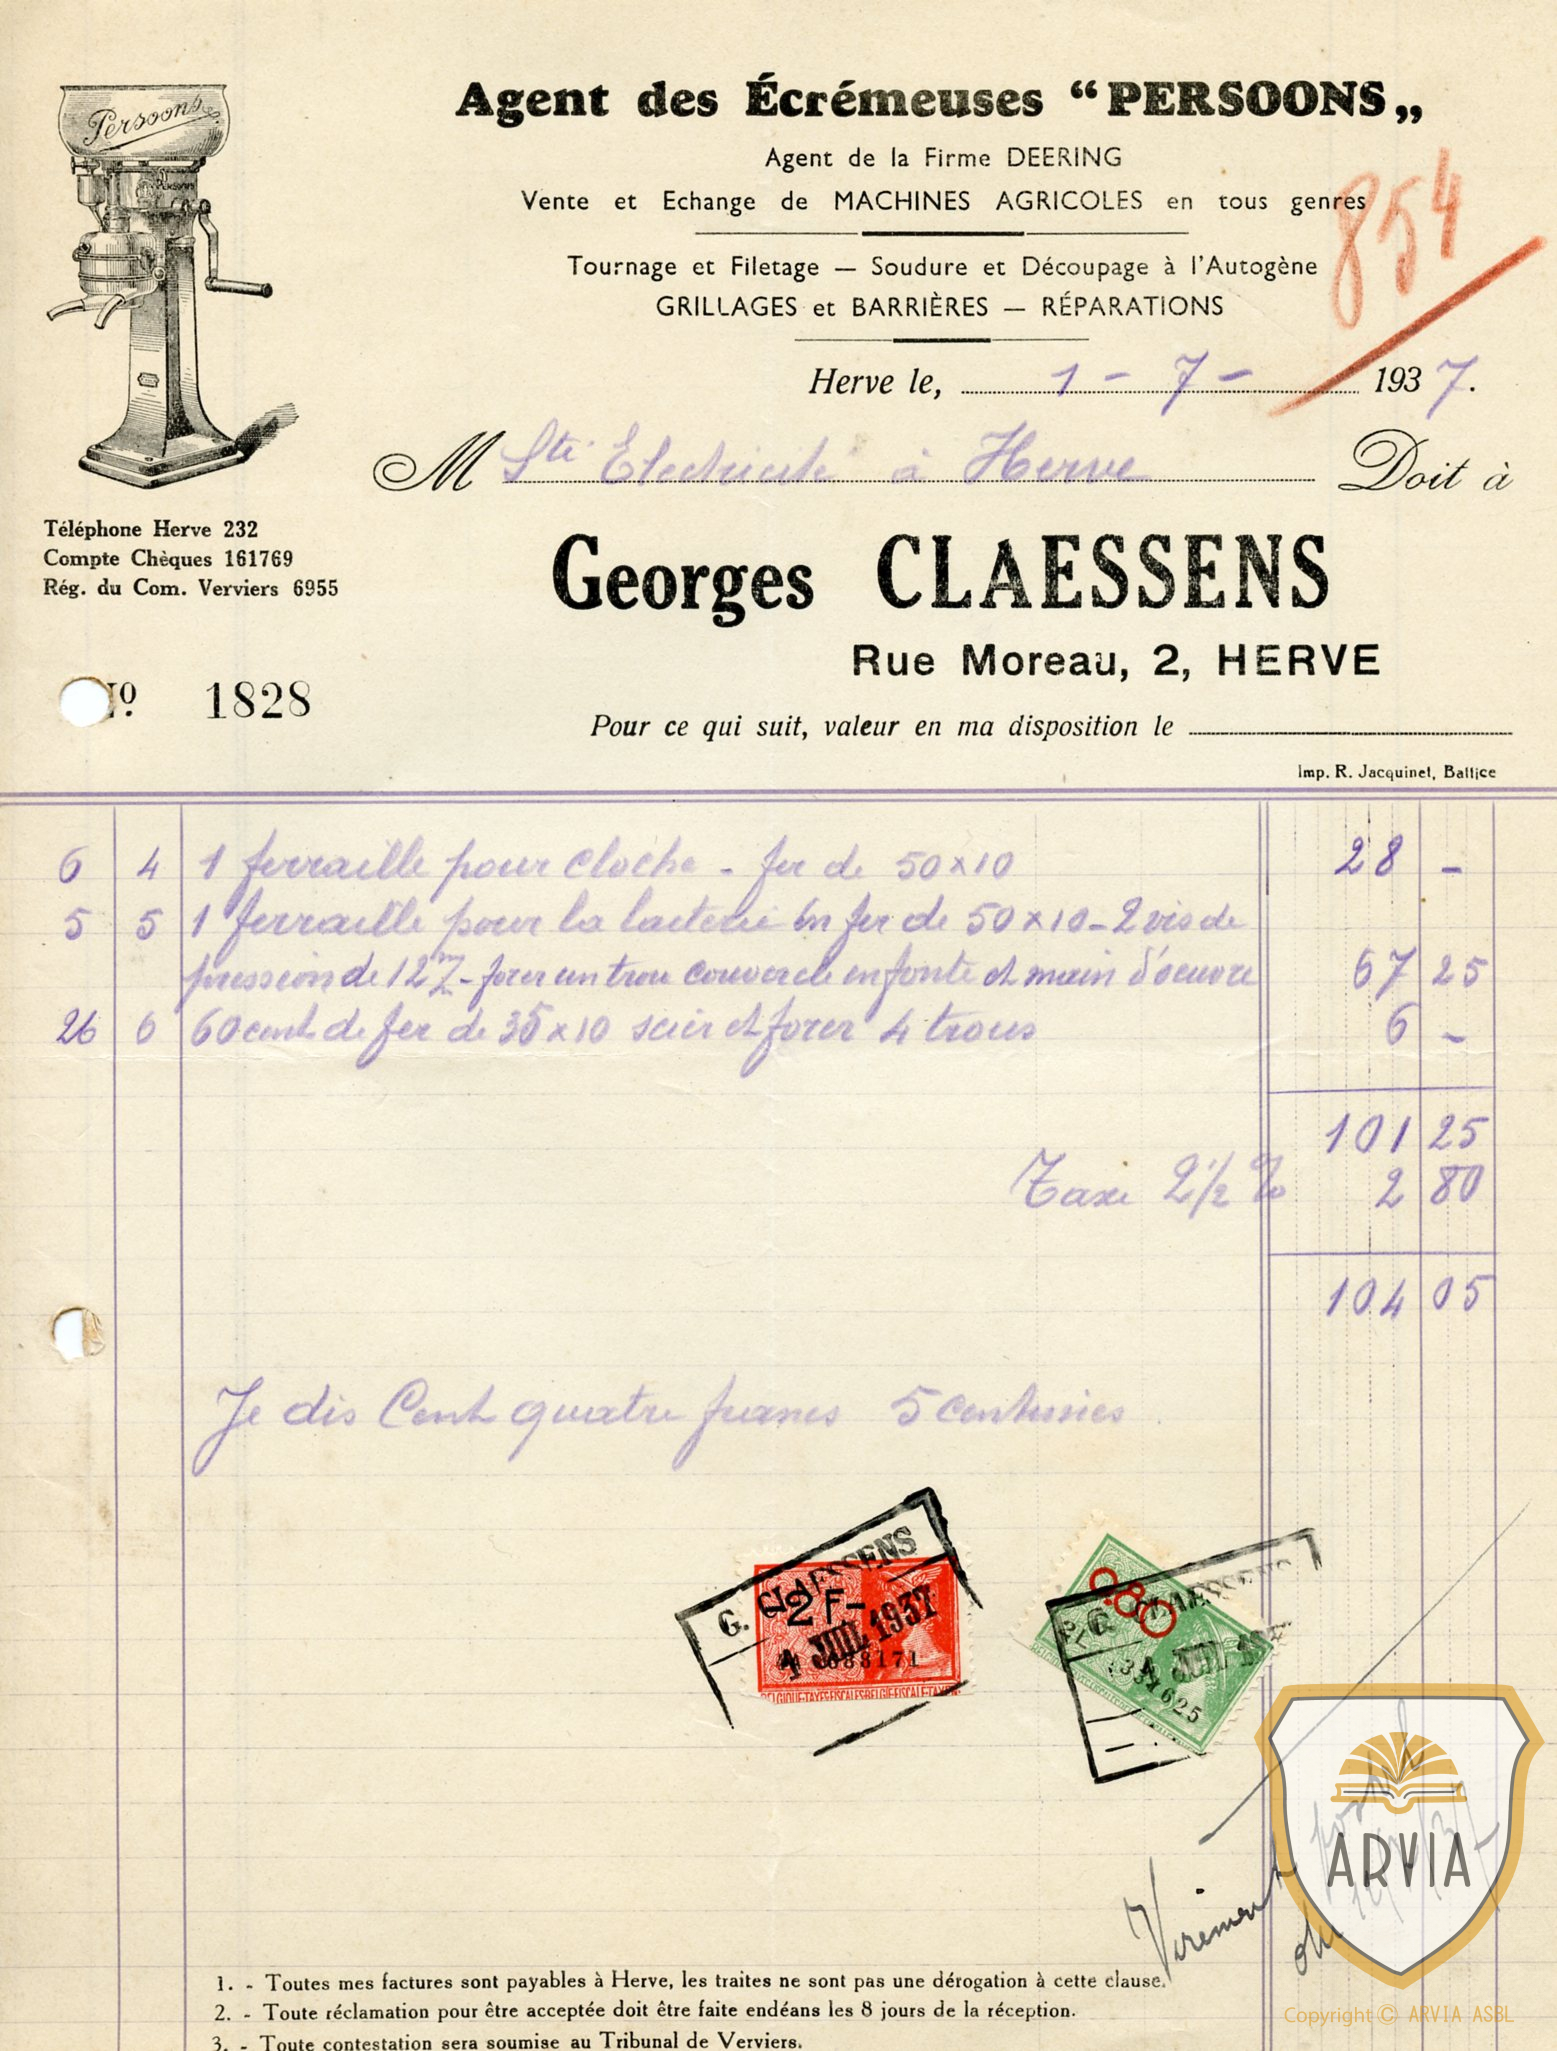 Persoons
PERSOONS
Agent des Écrémeuses “PERSOONS„
Agent de la Firme DEERING
Vente et Echange de MACHINES AGRICOLES en tous genres
854
Tournage et Filetage — Soudure et Découpage à l'Autogène
GRILLAGES et BARRIÈRES — RÉPARATIONS
Herve le, 1 - 7 - 1937.
M Sté Electricité à Herve Doit à
Téléphone Herve 232
Compte Chèques 161769
Rég. du Com. Verviers 6955
Georges CLAESSENS
Rue Moreau, 2, HERVE
No 1828
Pour ce qui suit, valeur en ma disposition le
Imp. R. Jacquinet, Battice
6 4 1 ferraille pour cloche - fer de 50x10 28 -
5 5 1 ferraille pour la laeterie en fer de 50x10 - 2 vis de
pression de 12 - forer un trou couvercle en fonte et main d'oeuvre 67 25
26 6 60 cent de fer de 35x10 scier et forer 4 trous 6 -
101 25
Taxe 2 1/2 % 2 80
104 05
Je dis Cent quatre francs 5 centimes
G. CLAESSENS
2 F-
4 JUIL 1937
088171
BELGIQUE-TAXES FISCALES BELGIE-FISCALE-TAXEN
G. CLAESSENS
0.80
4 JUIL
Virement postal
du
ARVIA
Copyright © ARVIA ASBL
1. - Toutes mes factures sont payables à Herve, les traites ne sont pas une dérogation à cette clause.
2. - Toute réclamation pour être acceptée doit être faite endéans les 8 jours de la réception.
3. - Toute contestation sera soumise au Tribunal de Verviers.